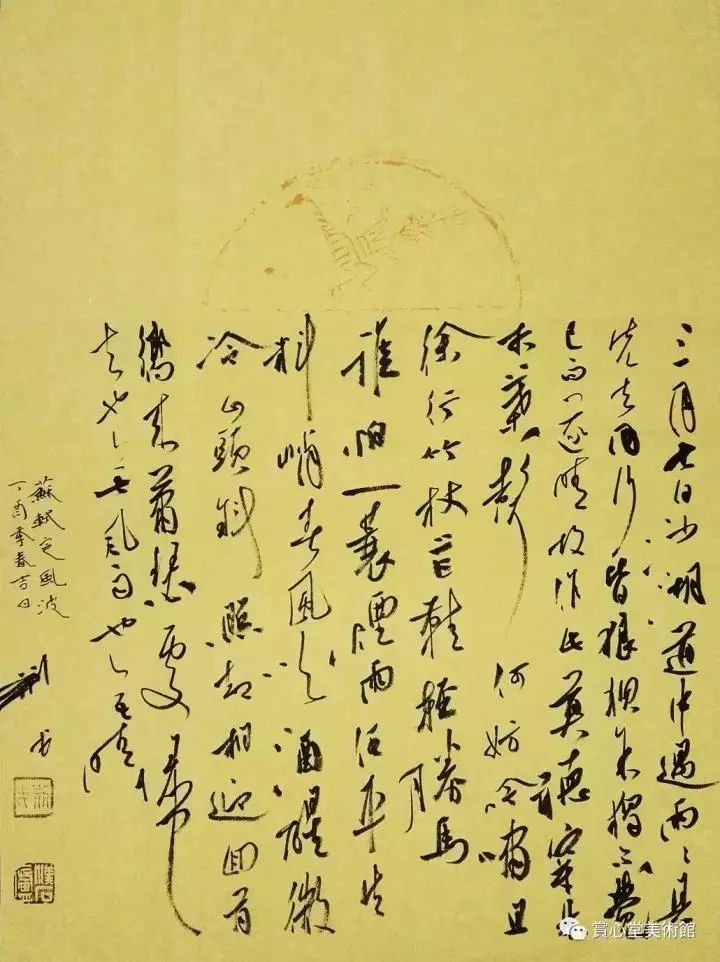 三月七日沙湖道中遇雨〻具
先去同行皆狼狽余獨不覺
已而遂晴故作此莫聽穿林
打葉聲何妨吟嘯且
徐行竹杖芒鞋輕勝馬
誰怕一蓑煙雨任平生
料峭春風吹酒醒微
冷山頭斜照却相迎回首
向來蕭瑟處歸
去也無風雨也無晴
蘇軾定風波
丁酉季春吉日
賞心堂美術館